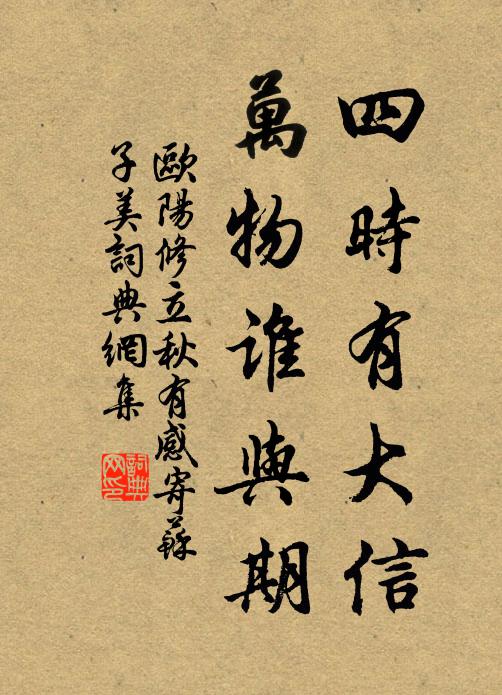 四時有大信
萬物誰與期
歐陽修立秋有感寄蘇
子美詞典網集
詞典
网印